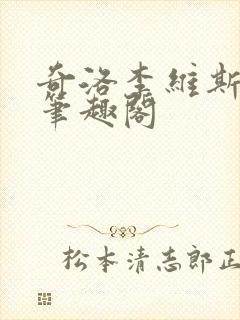 奇洛李維斯
筆趣閣
松本清志郎正